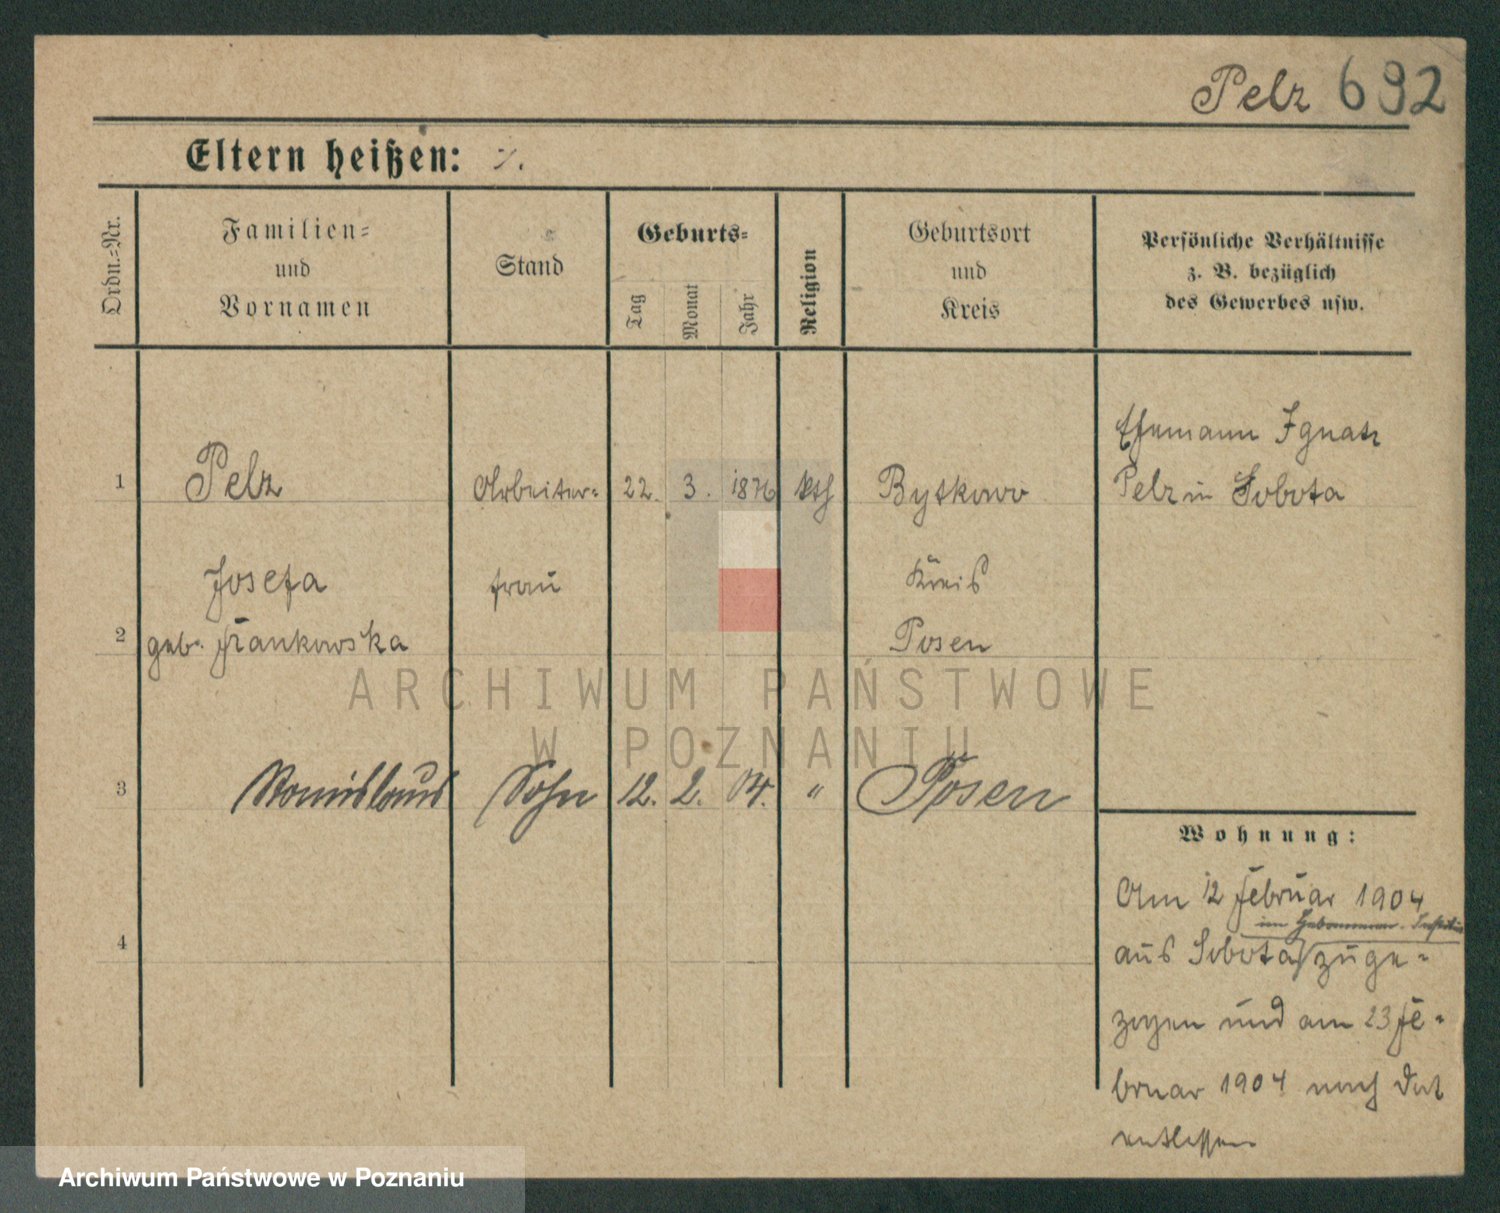 Pelz 692
Eltern heißen: ·/.
Ordn.-Nr.
Familien-
und
Vornamen
Stand
Geburts-
Tag
Monat
Jahr
Religion
Geburtsort
und
Kreis
Persönliche Verhältnisse
z. B. bezüglich
des Gewerbes usw.
Ehemann Ignatz
1 Pelz Arbeiter- 22. 3. 1876 kth Bytkowo Pelz in Sobota
Josefa frau Kreis
2 geb. Frankowska Posen
3 Stanislaus Sohn 12. 2. 04. " Posen
4
Wohnung:
Am 12 Februar 1904
im Hebammen-
aus Sobota zuge-
zogen und am 23 Fe-
bruar 1904 nach
entlassen
ARCHIWUM PAŃSTWOWE
W POZNANIU
Archiwum Państwowe w Poznaniu